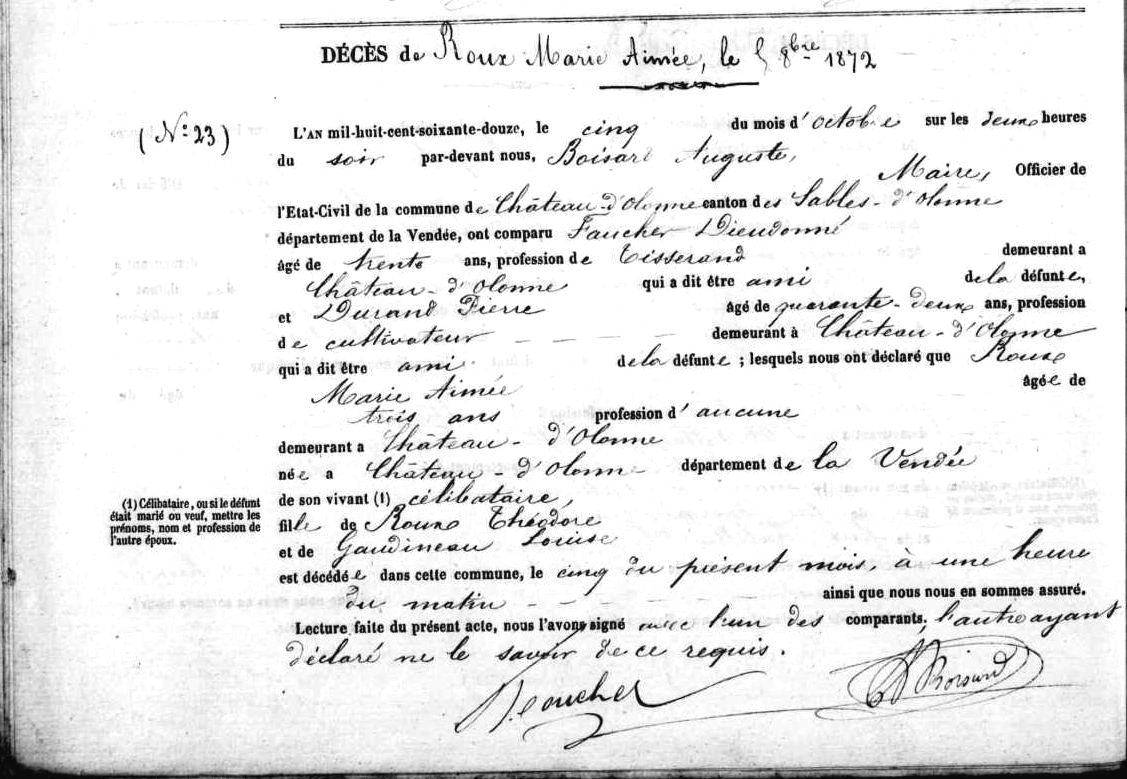 DÉCÈS de Roux Marie Aimée, le 5 8bre 1872
(N° 23)
L'AN mil-huit-cent-soixante-douze, le cinq du mois d'octobre sur les deux heures
du soir par-devant nous, Boisard Auguste,
Maire, Officier de
l'Etat-Civil de la commune de Château-d'Olonne canton des Sables-d'Olonne
département de la Vendée, ont comparu Faucher Dieudonné
âgé de trente ans, profession de Tisserand demeurant a
Château-d'Olonne qui a dit être ami de la défunte,
et Durand Pierre âgé de quarante-deux ans, profession
de cultivateur demeurant à Château-d'Olonne
qui a dit être ami de la défunte ; lesquels nous ont déclaré que Roux
Marie Aimée âgée de
trois ans profession d'aucune
demeurant a Château-d'Olonne
née a Château-d'Olonne département de la Vendée
de son vivant (1) célibataire,
fille de Roux Théodore
et de Gaudineau Louise
est décédée dans cette commune, le cinq du présent mois, à une heure
du matin ainsi que nous nous en sommes assuré.
Lecture faite du présent acte, nous l'avons signé avec l'un des comparants, l'autre ayant
déclaré ne le savoir de ce requis.
(1) Célibataire, ou si le défunt
était marié ou veuf, mettre les
prénoms, nom et profession de
l'autre époux.
Boisard